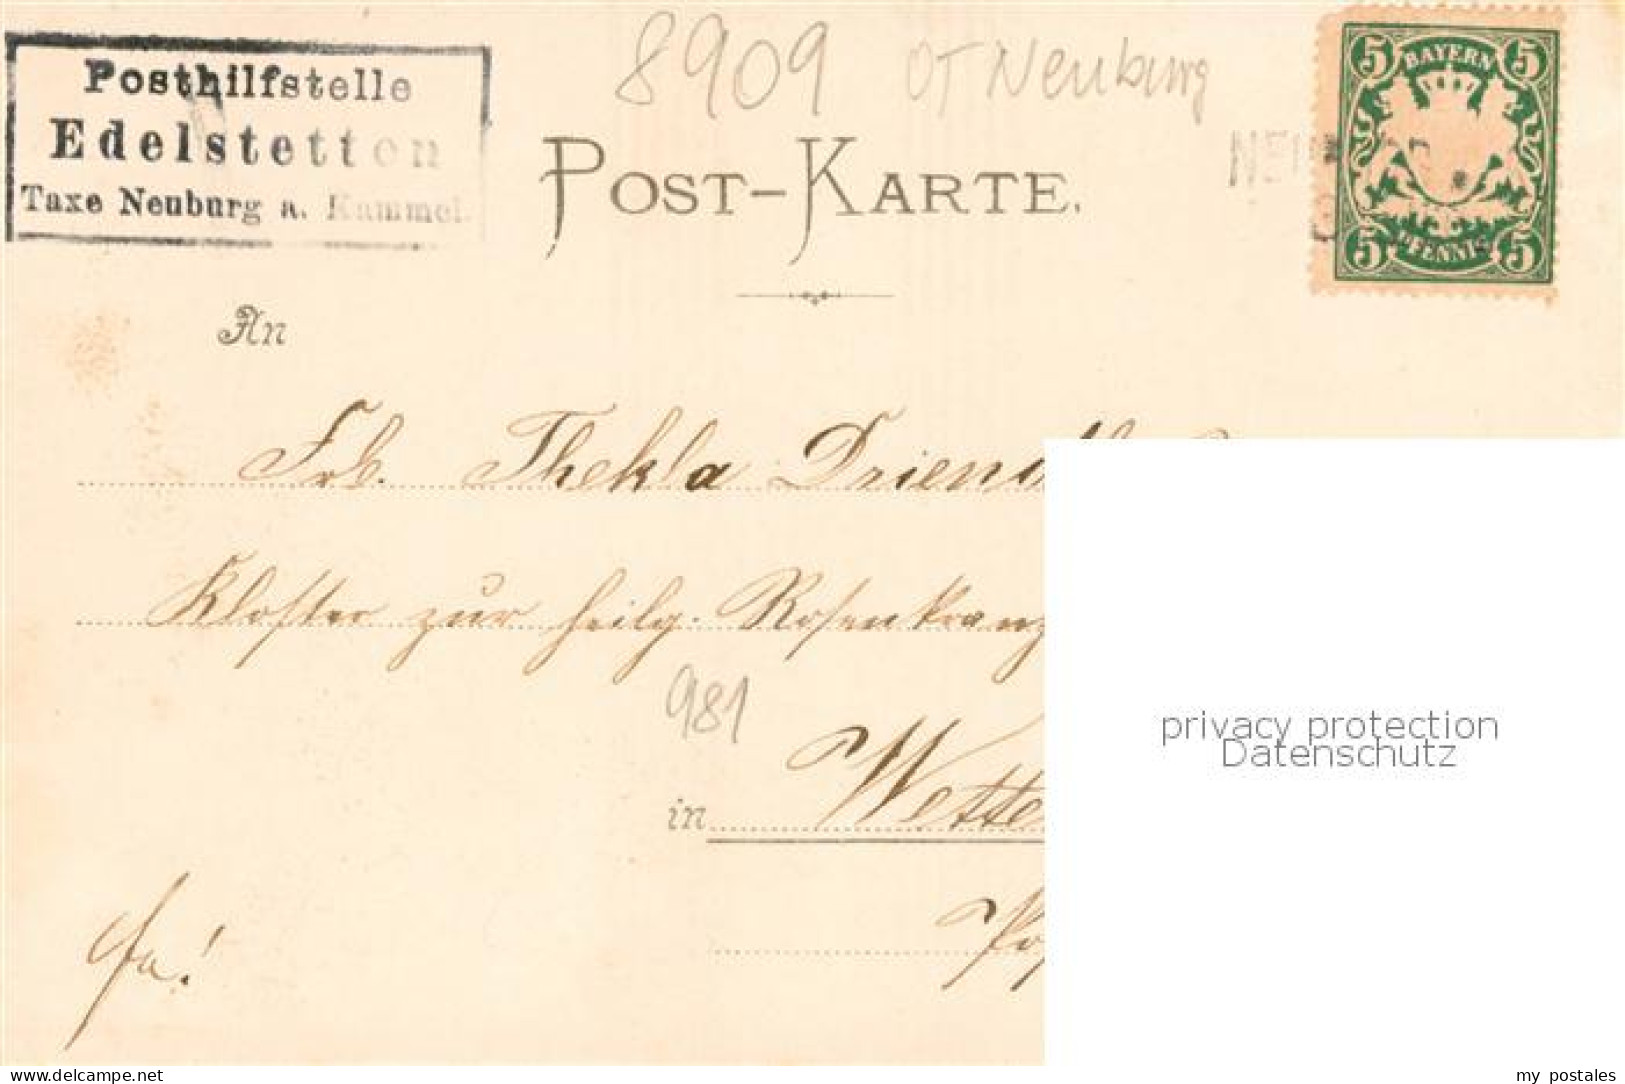 Posthilfstelle
Edelstetten
Taxe Neuburg a. Kammel.
8909 OT Neuburg
5 BAYERN 5
5 PFENNIG 5
NEU
POST-KARTE.
An
Frl. Thekla
Kloster zur heilg. Rosenkranz
981
in Wette
privacy protection
Datenschutz
my_postales